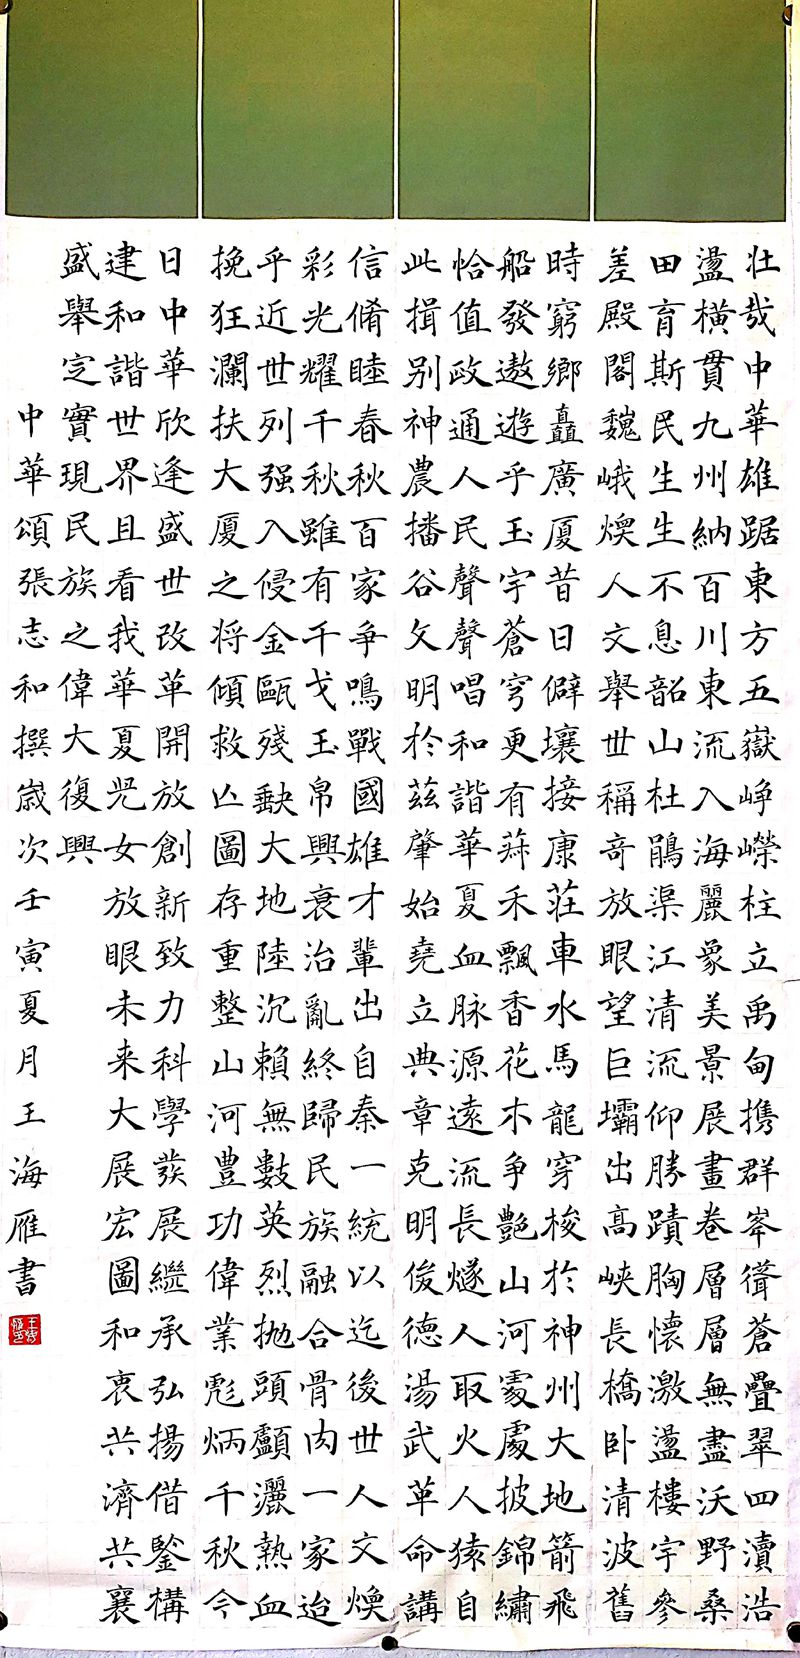 壮哉中華雄踞東方五嶽崢嶸柱立禹甸攜群峯聳蒼疊翠四瀆浩
盪橫貫九州納百川東流入海麗象美景展畫卷層層無盡沃野桑
田育斯民生生不息韶山杜鵑渠江清流仰勝蹟胸懷激盪樓宇參
差殿閣巍峨煥人文舉世稱奇放眼望巨壩出高峽長橋卧清波舊
時窮鄉矗廣厦昔日僻壤接康莊車水馬龍穿梭於神州大地箭飛
船發遨遊乎玉宇蒼穹更有蒜禾飄香花木爭艷山河處處披錦繡
恰值政通人民聲聲唱和諧華夏血脉源遠流長燧人取火人猿自
此揖别神農播谷文明於茲肇始堯立典章克明俊德湯武革命講
信脩睦春秋百家爭鳴戰國雄才輩出自秦一統以迄後世人文煥
彩光耀千秋雖有干戈玉帛興衰治亂終歸民族融合骨肉一家迨
乎近世列强入侵金甌殘缺大地陸沉賴無數英烈抛頭顱灑熱血
挽狂瀾扶大厦之將傾救亾圖存重整山河豊功偉業彪炳千秋今
日中華欣逢盛世改革開放創新致力科學發展繼承弘揚借鑒構
建和諧世界且看我華夏児女放眼未来大展宏圖和衷共濟共襄
盛舉定實現民族之偉大復興
中華頌張志和撰嵗次壬寅夏月王海雁書